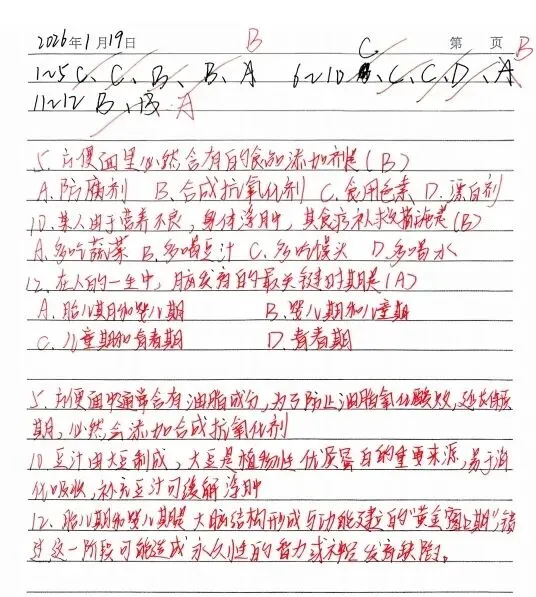 2026年1月19日 B C 第 页 B
1~5 C、C、B、B、A 6~10 、C、C、D、A
11~12 B、B A
5. 方便面里必然含有的食品添加剂是(B)
A.防腐剂 B.合成抗氧化剂 C.食用色素 D.漂白剂
10.某人由于营养不良,身体浮肿,其食疗补救措施是(B)
A.多吃蔬菜 B.多喝豆汁 C.多吃馒头 D.多喝水
12.在人的一生中,脑发育的最关键时期是(A)
A.胎儿期和婴儿期 B.婴儿期和儿童期
C.儿童期和青春期 D.青春期
5.方便面中通常含有油脂成分,为了防止油脂氧化酸败,延长保质
期,必然会添加合成抗氧化剂
10.豆汁由大豆制成,大豆是植物性优质蛋白的重要来源,易于消
化吸收,补充豆汁可缓解浮肿
12.胎儿期和婴儿期是大脑结构形成与功能建立的"黄金窗口期",错
过这一阶段可能造成永久性的智力或神经发育缺陷。